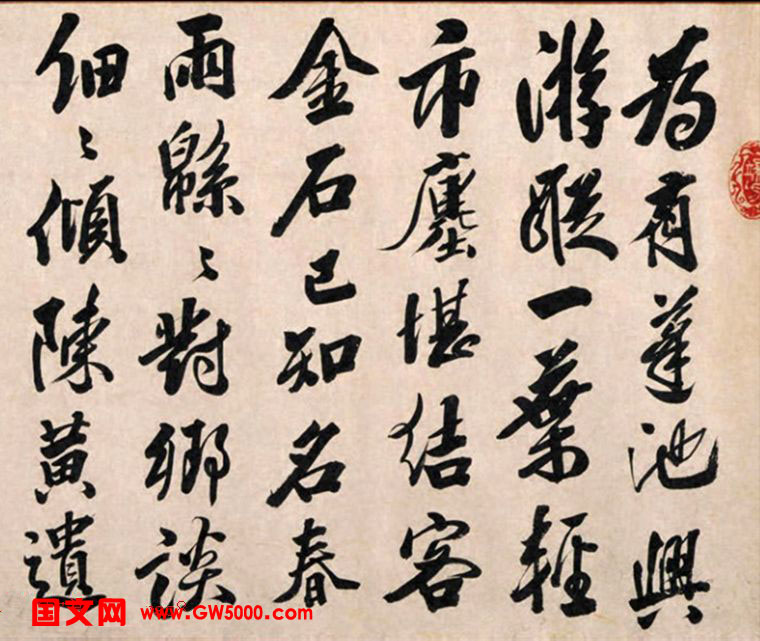 為有蓬池興
游蹤一葉輕
市塵堪結客
金石已知名春
雨緜〻對鄉談
細〻傾陳黃遺
国文网 www.GW5000.com